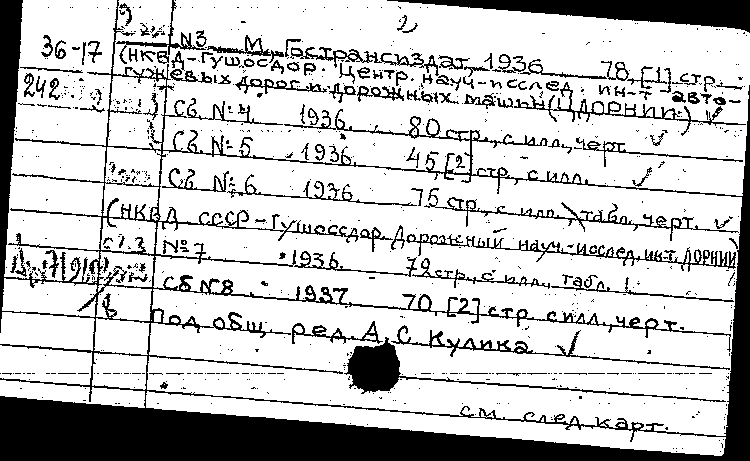 2
N3. М. Гострансиздат, 1936 78, [1] стр.
36-17
(НКВД-Гушосдор. Центр. науч.-исслед. ин-т авто-
гужевых дорог и дорожных машин (ЦДОРНИИ))
242
Сб. № 4. 1936. 80 стр., с илл., черт.
Сб. № 5. 1936. 45, [2] стр., с илл.
Сб. № 6. 1936. 75 стр., с илл., табл., черт.
(НКВД СССР-Гушоссдор. Дорожный науч.-исслед. инт. ДОРНИИ)
№ 7 1936. 72 стр., с илл., табл.
Сб N 8. 1937. 70, [2] стр. с илл., черт.
Под общ. ред. А. С. Кулика
см. след карт.